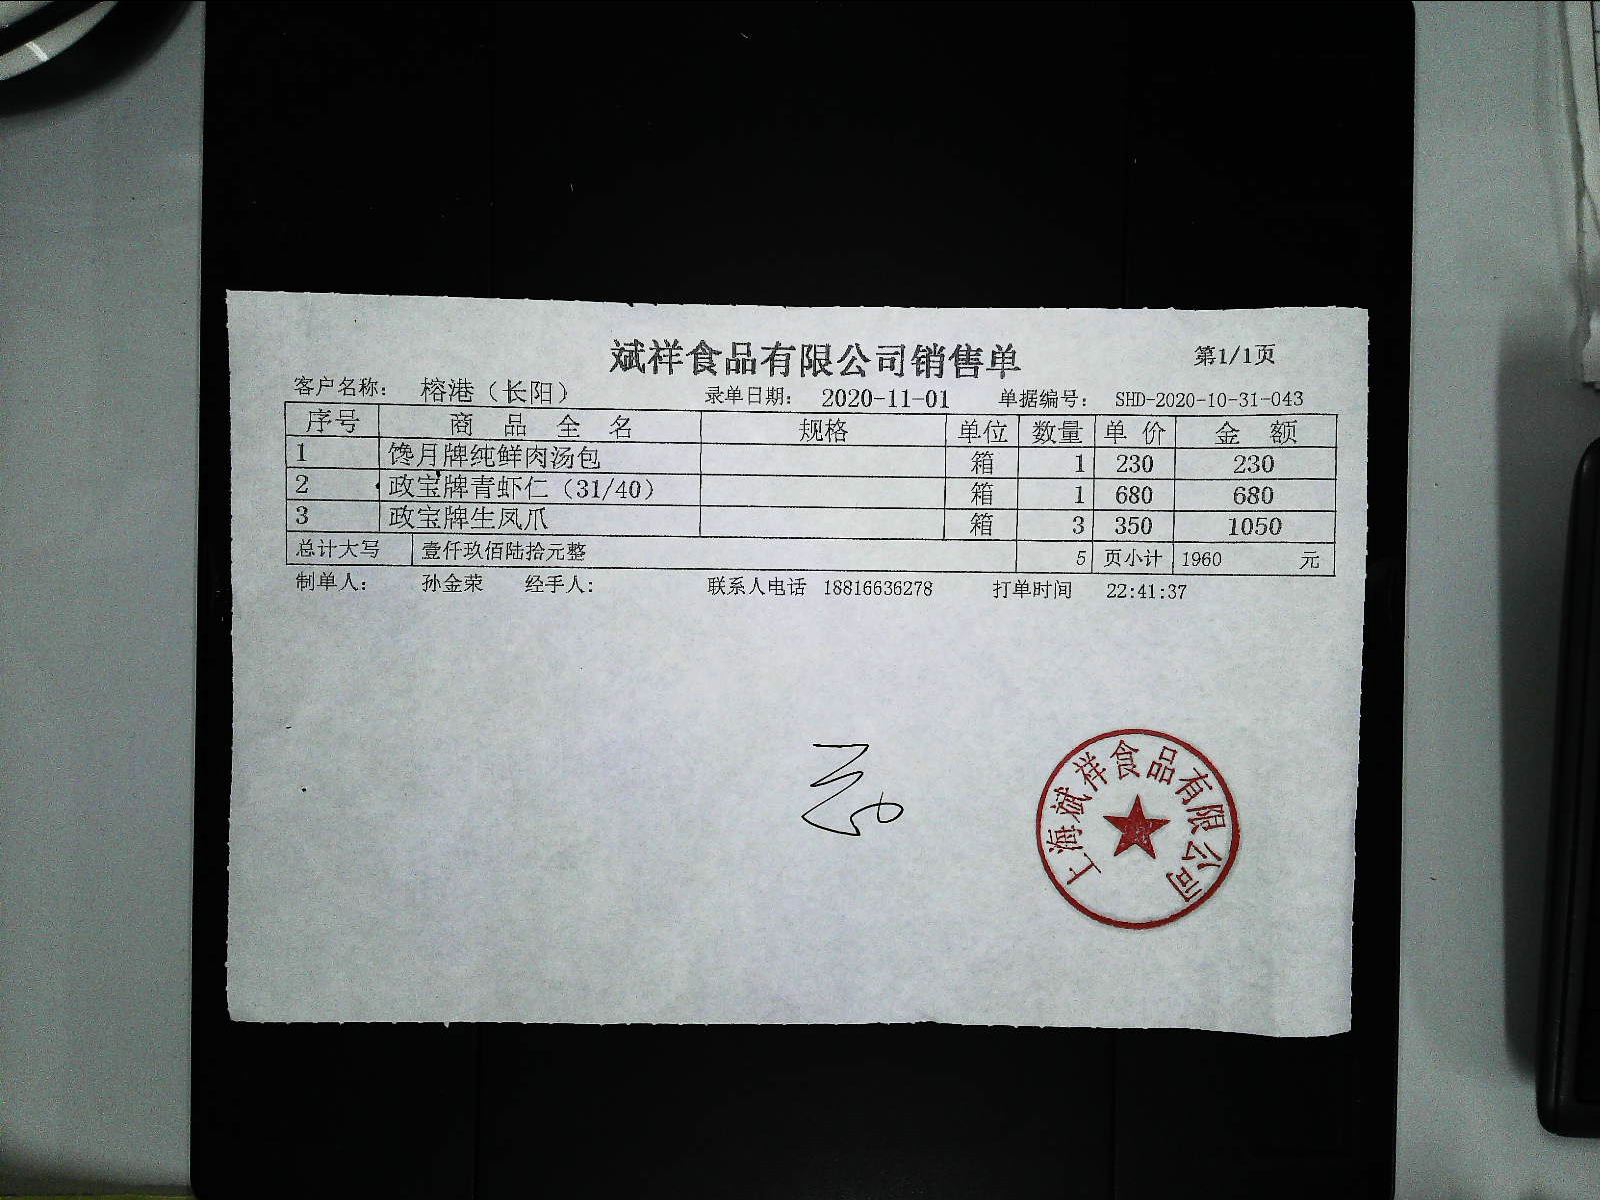 斌祥食品有限公司销售单 第1/1页
客户名称： 榕港（长阳） 录单日期： 2020-11-01 单据编号： SHD-2020-10-31-043
序号 商 品 全 名 规格 单位 数量 单 价 金 额
1 馋月牌纯鲜肉汤包 箱 1 230 230
2 政宝牌青虾仁（31/40） 箱 1 680 680
3 政宝牌生凤爪 箱 3 350 1050
总计大写 壹仟玖佰陆拾元整 5 页小计 1960 元
制单人： 孙金荣 经手人： 联系人电话 18816636278 打单时间 22:41:37
上海斌祥食品有限公司